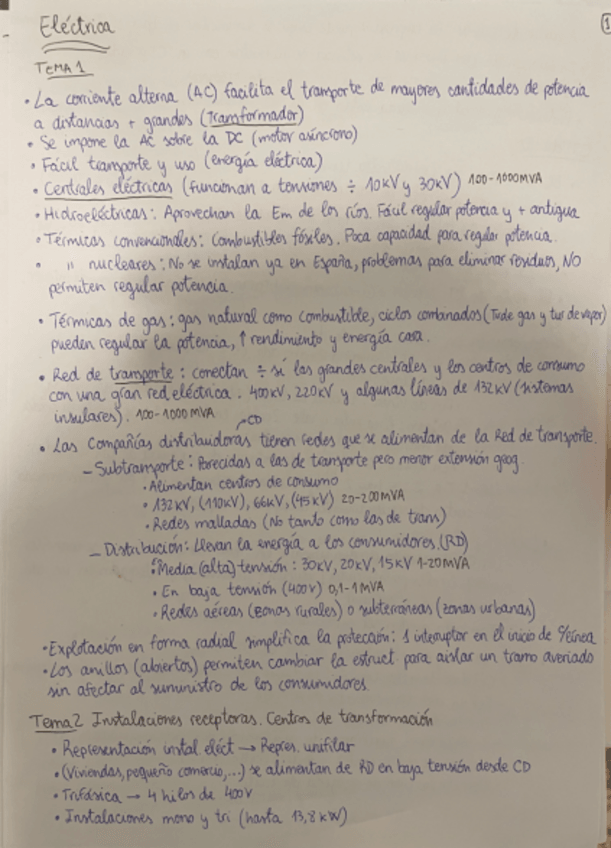 Eléctrica
1
TEMA 1
• La corriente alterna (AC) facilita el transporte de mayores cantidades de potencia
a distancias + grandes (Transformador)
• Se impone la AC sobre la DC (motor asíncrono)
• Fácil transporte y uso (energía eléctrica)
• Centrales eléctricas (funcionan a tensiones ÷ 10kV y 30kV) 100-1000MVA
• Hidroeléctricas: Aprovechan la Em de los ríos. Fácil regular potencia y + antigua
• Térmicas convencionales: Combustibles fósiles. Poca capacidad para regular potencia.
• " nucleares: No se instalan ya en España, problemas para eliminar residuos, NO
permiten regular potencia.
• Térmicas de gas: gas natural como combustible, ciclos combinados (Tur de gas y tur de vapor)
pueden regular la potencia, ↑ rendimiento y energía cara.
• Red de transporte: conectan ÷ sí las grandes centrales y los centros de consumo
con una gran red eléctrica. 400kV, 220kV y algunas líneas de 132kV (sistemas
insulares). 100-1000 MVA
CD
• Las Compañías distribuidoras tienen redes que se alimentan de la Red de transporte.
– Subtransporte: Parecidas a las de transporte pero menor extensión geog.
• Alimentan centros de consumo
• 132kV, (110kV), 66kV, (45kV) 20-200MVA
• Redes malladas (No tanto como las de trans)
– Distribución: Llevan la energía a los consumidores. (RD)
• Media (alta) tensión: 30kV, 20kV, 15kV 1-20MVA
• En baja tensión (400v) 0,1-1MVA
• Redes aéreas (zonas rurales) o subterráneas (zonas urbanas)
• Explotación en forma radial simplifica la protección: 1 interruptor en el inicio de c/línea
• Los anillos (abiertos) permiten cambiar la estruct para aislar un tramo averiado
sin afectar al suministro de los consumidores
Tema 2 Instalaciones receptoras. Centros de transformación
• Representación instal eléct → Repres. unifilar
• (Viviendas, pequeño comercio,...) se alimentan de RD en baja tensión desde CD
• Trifásica → 4 hilos de 400v
• Instalaciones mono y tri (hasta 13,8kW)